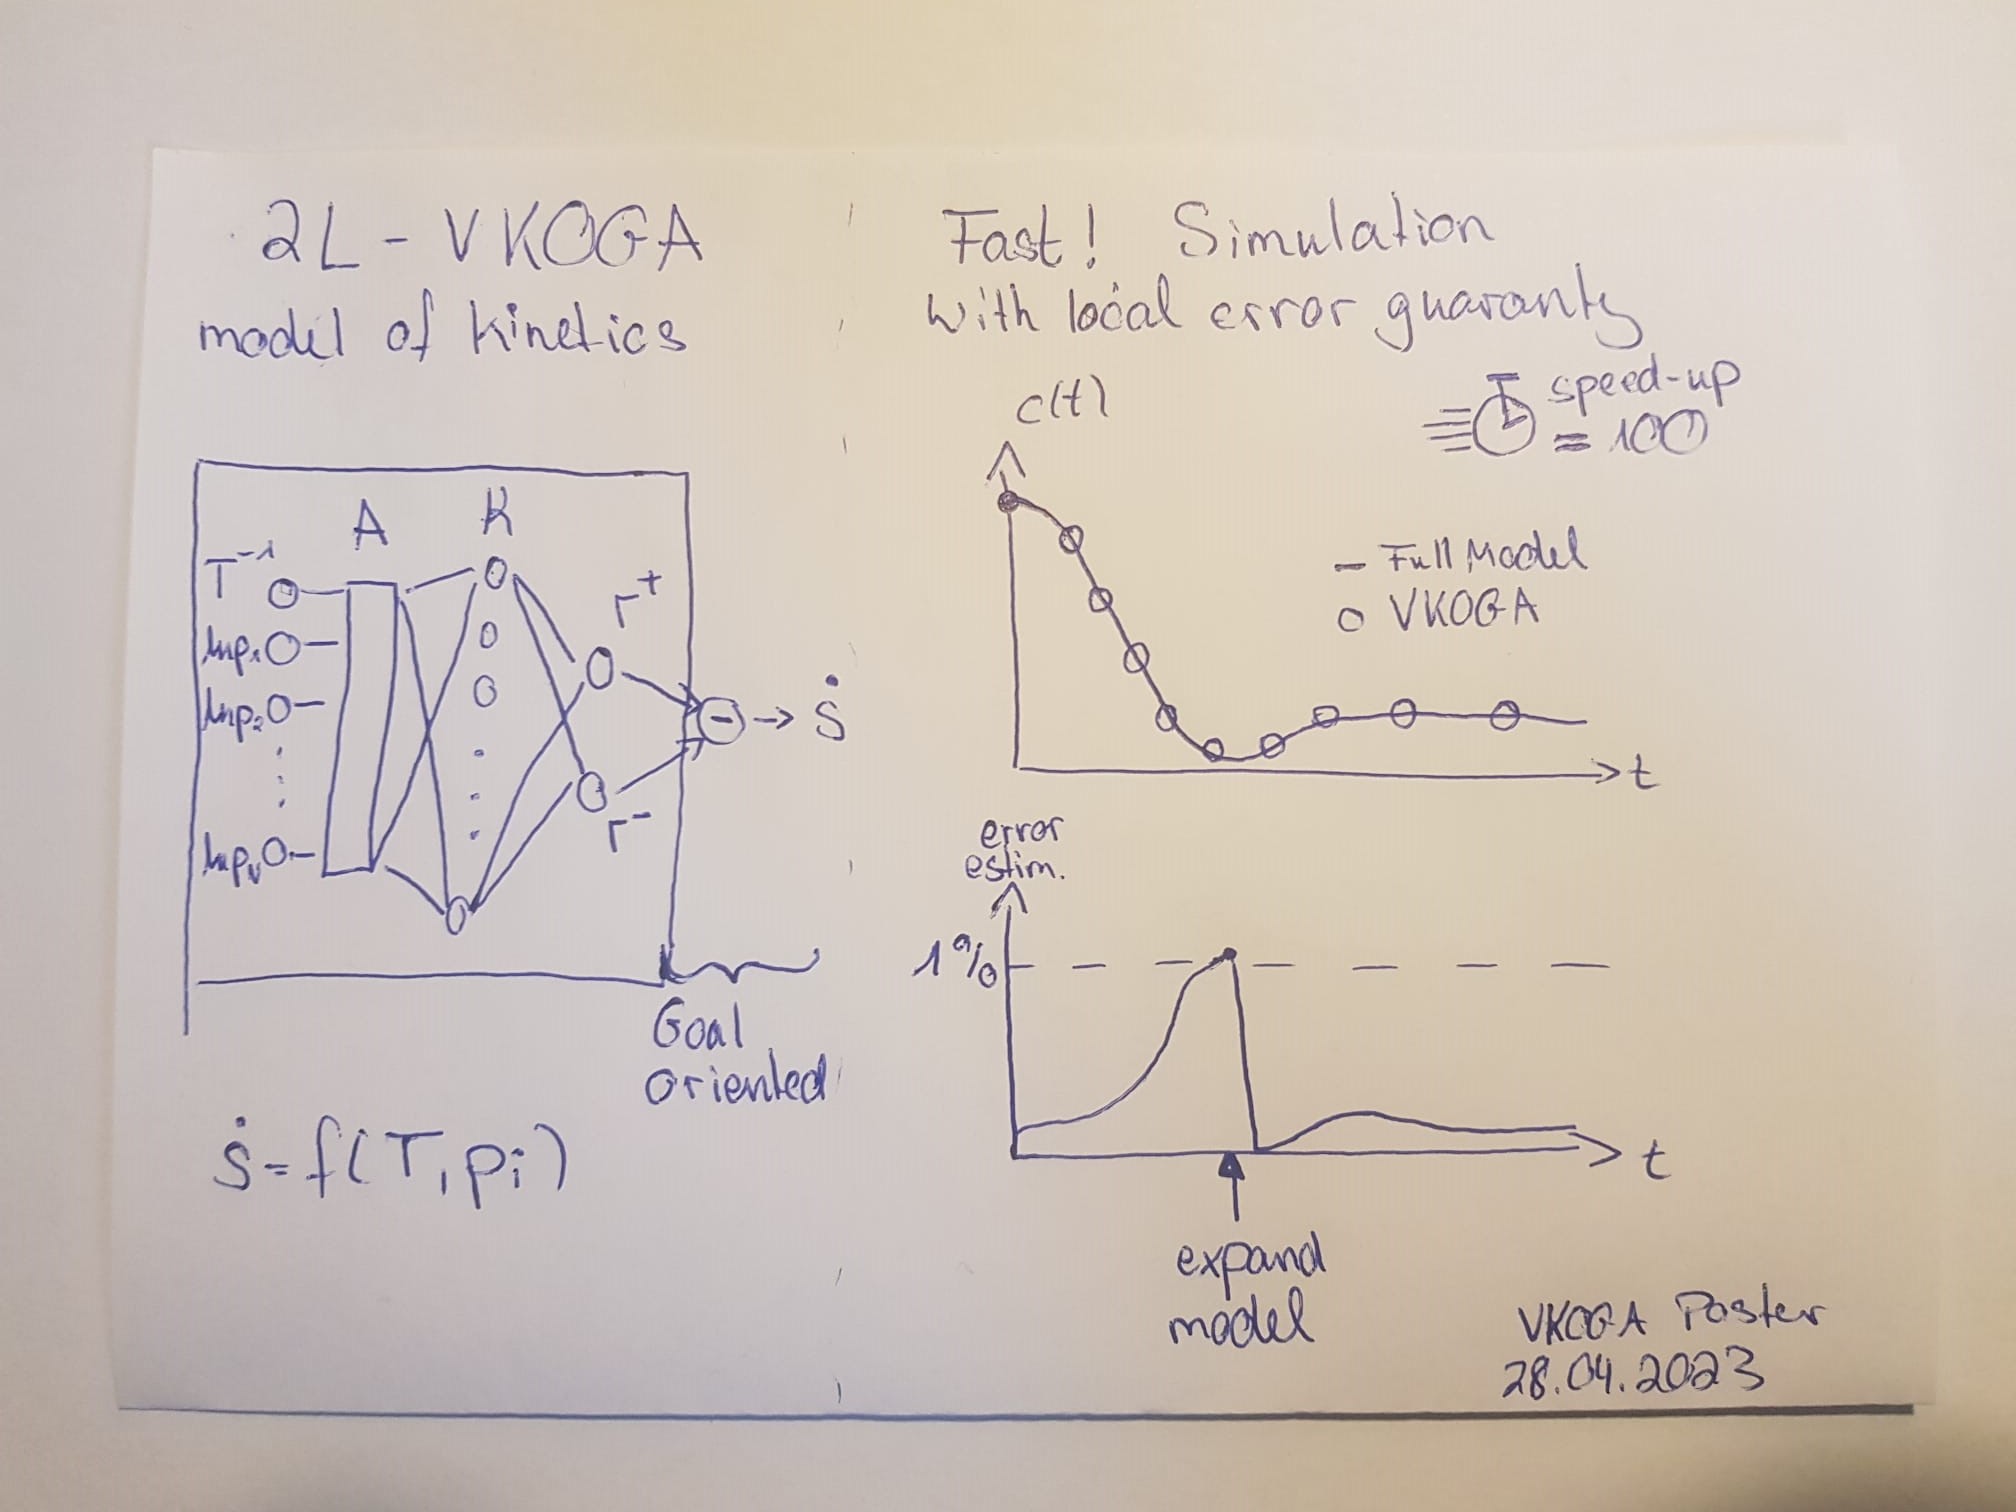 2L - VKOGA
model of kinetics
A
K
T⁻¹
lnp₁
lnp₂
lnpₙ
r⁺
r⁻
-
ṡ
Goal
oriented
ṡ = f(T, pi)
Fast! Simulation
with local error guaranty
speed-up
= 100
c(t)
- Full Model
o VKOGA
t
error
estim.
1%
t
expand
model
VKOGA Poster
28.04.2023